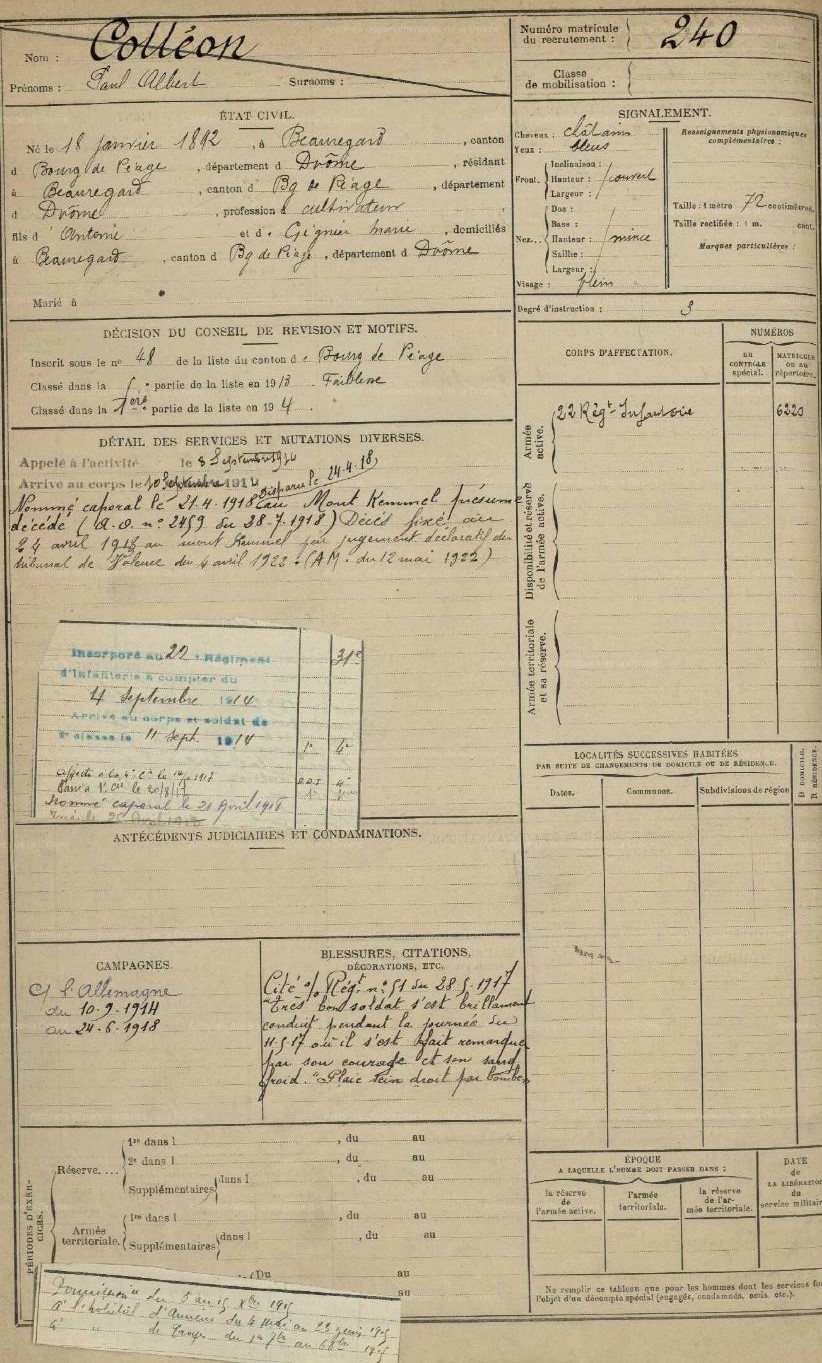 Nom : Colléon
Prénoms : Paul Albert Surnoms :
Numéro matricule du recrutement : 240
Classe de mobilisation :
ÉTAT CIVIL.
Né le 18 janvier 1892, à Beauregard, canton
d Bourg de Péage, département d Drôme, résidant
à Beauregard, canton d' Bg de Péage, département
d Drôme, profession d cultivateur
fils d' Antoine et de Gignier Marie, domiciliés
à Beauregard, canton d Bg de Péage, département d Drôme
Marié à
SIGNALEMENT.
Cheveux : châtains
Yeux : bleus
Front. Inclinaison :
Hauteur : couvert
Largeur :
Nez... Dos :
Base :
Hauteur : mince
Saillie :
Largeur :
Visage : plein
Renseignements physionomiques complémentaires :
Taille : 1 mètre 72 centimètres.
Taille rectifiée : 1 m. cent.
Marques particulières :
Degré d'instruction : 3
DÉCISION DU CONSEIL DE REVISION ET MOTIFS.
Inscrit sous le n° 48 de la liste du canton de Bourg de Péage
Classé dans la 5e partie de la liste en 1913 Faiblesse
Classé dans la 1ère partie de la liste en 1914.
DÉTAIL DES SERVICES ET MUTATIONS DIVERSES.
Appelé à l'activité le 8 Septembre 1914
Arrivé au corps le 10 Septembre 1914 Disparu le 24-4-18
Nommé caporal le 21-4-1918 au Mont Kemmel présumé
décédé (A.O. n° 2459 du 28-7-1918) Décès fixé au
24 avril 1918 au mont Kemmel par jugement déclaratif du
tribunal de Valence du 4 avril 1922. (AM. du 12 mai 1922)
Incorporé au 22e Régiment 31e
d'infanterie à compter du
4 Septembre 1914
Arrivé au corps et soldat de
2e classe le 11 Sept. 1914
Affecté à la 4e Cie le
Passé à 1e Cie le 20/8/17
Nommé caporal le 21 Avril 1918
Tué le 25 Avril 1918
CORPS D'AFFECTATION.
NUMÉROS
au CONTROLE spécial.
MATRICULE ou au répertoire.
Armée active.
22 Régt Infanterie 6220
Disponibilité et réserve de l'armée active.
Armée territoriale et sa réserve.
LOCALITÉS SUCCESSIVES HABITÉES
PAR SUITE DE CHANGEMENTS DE DOMICILE OU DE RÉSIDENCE.
Dates. Communes. Subdivisions de région
D. DOMICILE.
R. RÉSIDENCE.
ANTÉCÉDENTS JUDICIAIRES ET CONDAMNATIONS.
CAMPAGNES.
C/ l'Allemagne
du 10-9-1914
au 24-6-1918
BLESSURES, CITATIONS,
DÉCORATIONS, ETC.
Cité o/ Régt n° 51 du 28-5-1917
"Très bon soldat s'est brillament
conduit pendant la journée du
11-5-17 où il s'est fait remarquer
par son courage et son sang
froid." Plaie sein droit par bombe
PÉRIODES D'EXERCICES.
Réserve....
1re dans l , du au
2e dans l , du au
Supplémentaires dans l , du au
Armée territoriale.
1re dans l , du au
Supplémentaires dans l , du au
Du au
au
du 5 au 15 Xbre 1915
A l'hôpital d'Amiens du 4 Mai au 23 juin 1915
de Troyes du 1er 7bre au 6 8bre 1915
ÉPOQUE
A LAQUELLE L'HOMME DOIT PASSER DANS :
la réserve de l'armée active.
l'armée territoriale.
la réserve de l'armée territoriale.
DATE de LA LIBÉRATION du service militaire
Ne remplir ce tableau que pour les hommes dont les services font
l'objet d'un décompte spécial (engagés, condamnés, omis, etc.).